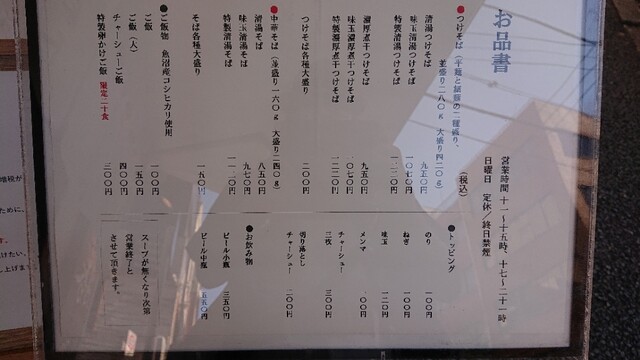 お品書
営業時間 十一〜十五時、十七〜二十一時
日曜日 定休／終日禁煙
(税込)
●つけそば（平麺と胡麻の二種盛り、
並盛り二八〇g 大盛り四二〇g）
清湯つけそば 九五〇円
味玉清湯つけそば 一〇七〇円
特製清湯つけそば 一二二〇円
濃厚煮干つけそば 九五〇円
味玉濃厚煮干つけそば 一〇七〇円
特製濃厚煮干つけそば 一二二〇円
つけそば各種大盛り 二〇〇円
●中華そば（並盛り一六〇g 大盛り二四〇g）
清湯そば 八五〇円
味玉清湯そば 九七〇円
特製清湯そば 一一二〇円
そば各種大盛り 一五〇円
●ご飯物 魚沼産コシヒカリ使用
ご飯 一〇〇円
ご飯（大） 一五〇円
チャーシューご飯 四〇〇円
特製卵かけご飯 限定二十食 三〇〇円
●トッピング
のり 一〇〇円
ねぎ 一〇〇円
味玉 一二〇円
メンマ 一〇〇円
チャーシュー
三枚 三〇〇円
切り落とし
チャーシュー 二〇〇円
●お飲み物
ビール小瓶 三五〇円
ビール中瓶 五五〇円
スープが無くなり次第
営業終了と
させて頂きます。